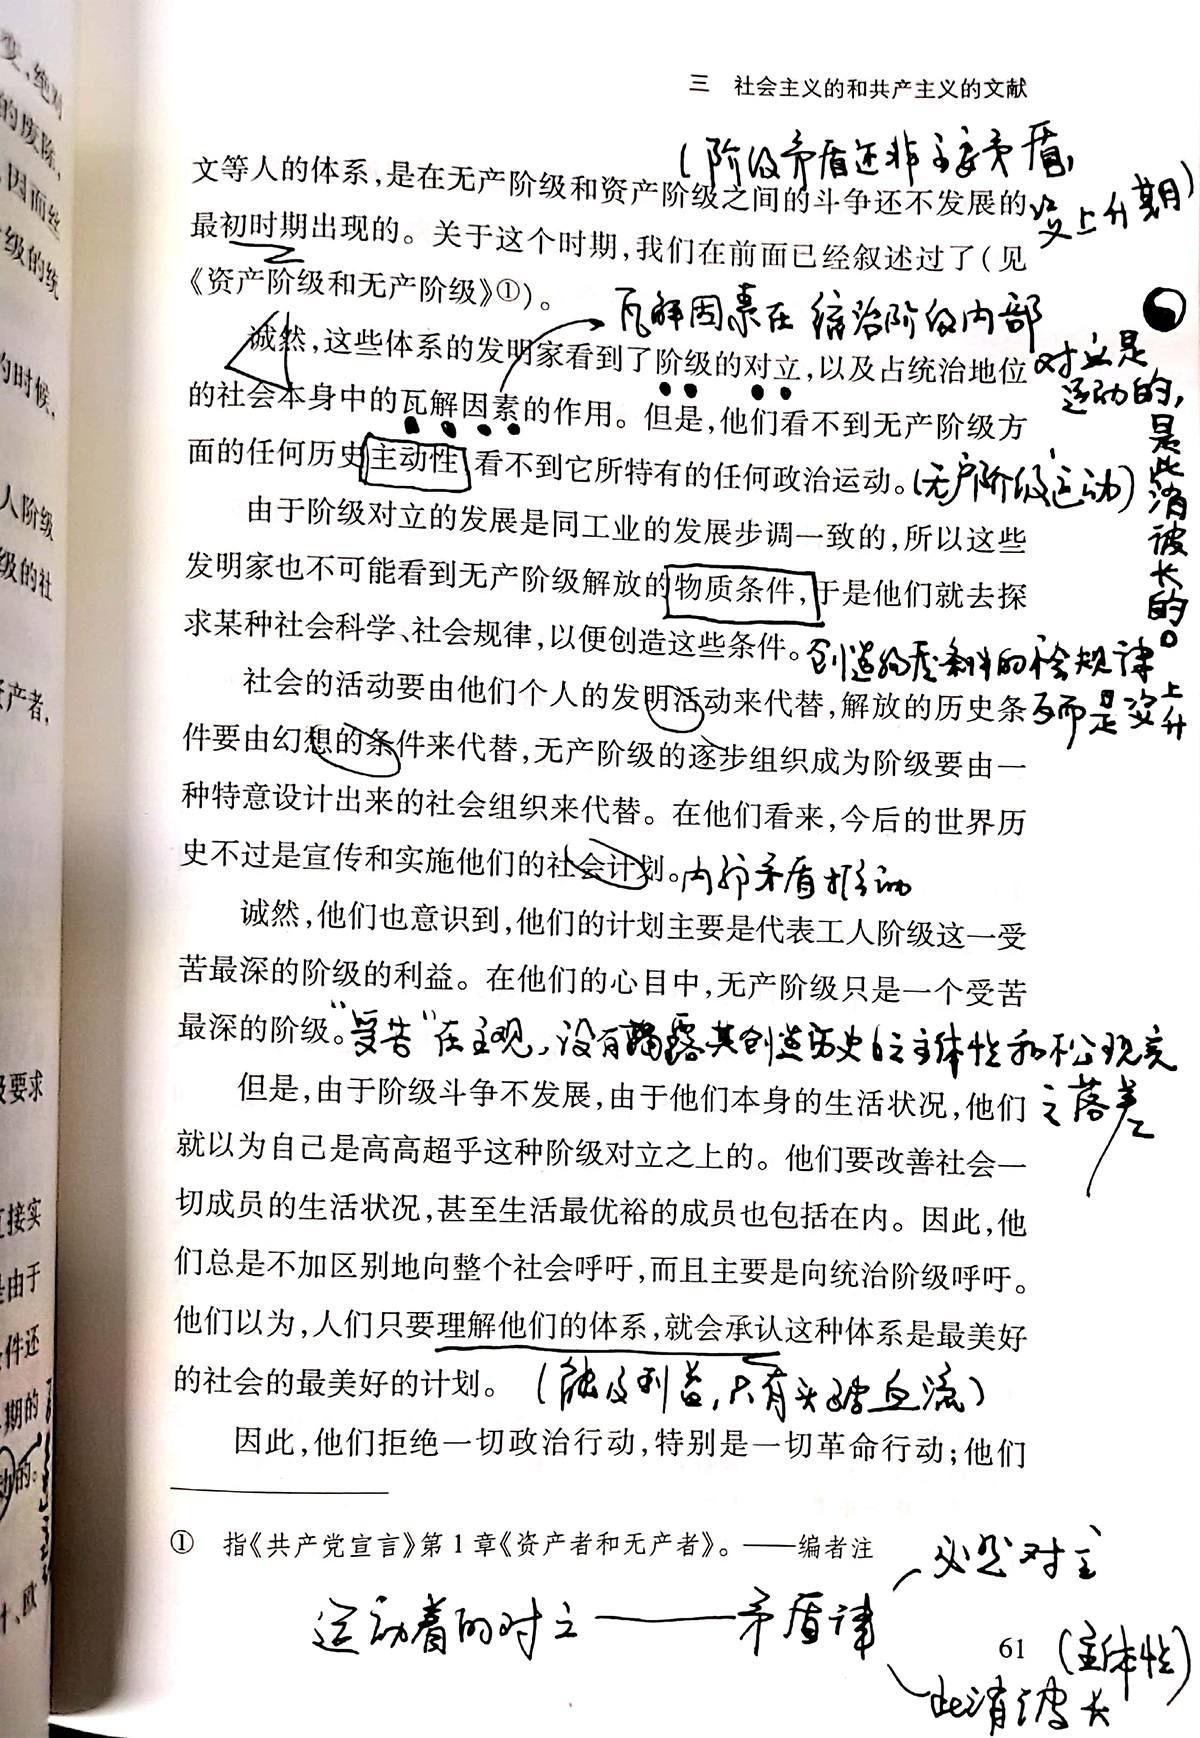 变、绝对
的废除,
因而丝
级的统
的时候,
人阶级
级的社
产者,
要求
接实
由于
件还
期的
的。
、欧
三 社会主义的和共产主义的文献
(阶级矛盾还非主要矛盾,
没上升期)
文等人的体系,是在无产阶级和资产阶级之间的斗争还不发展的
最初时期出现的。关于这个时期,我们在前面已经叙述过了(见
《资产阶级和无产阶级》①)。
瓦解因素在统治阶级内部
诚然,这些体系的发明家看到了阶级的对立,以及占统治地位
的社会本身中的瓦解因素的作用。但是,他们看不到无产阶级方
面的任何历史主动性,看不到它所特有的任何政治运动。(无产阶级运动)
对立是
运动的,
是此消彼长的。
由于阶级对立的发展是同工业的发展步调一致的,所以这些
发明家也不可能看到无产阶级解放的物质条件,于是他们就去探
求某种社会科学、社会规律,以便创造这些条件。
创造物质条件的社会规律
反而是没上升
社会的活动要由他们个人的发明活动来代替,解放的历史条
件要由幻想的条件来代替,无产阶级的逐步组织成为阶级要由一
种特意设计出来的社会组织来代替。在他们看来,今后的世界历
史不过是宣传和实施他们的社会计划。内部矛盾推动
诚然,他们也意识到,他们的计划主要是代表工人阶级这一受
苦最深的阶级的利益。在他们的心目中,无产阶级只是一个受苦
最深的阶级。“受苦”在主观,没有揭露其创造历史的主体性和
现实
之落差
但是,由于阶级斗争不发展,由于他们本身的生活状况,他们
就以为自己是高高超乎这种阶级对立之上的。他们要改善社会一
切成员的生活状况,甚至生活最优裕的成员也包括在内。因此,他
们总是不加区别地向整个社会呼吁,而且主要是向统治阶级呼吁。
他们以为,人们只要理解他们的体系,就会承认这种体系是最美好
的社会的最美好的计划。(触及利益,只有头破血流)
因此,他们拒绝一切政治行动,特别是一切革命行动;他们
① 指《共产党宣言》第1章《资产者和无产者》。——编者注
必然对立
运动着的对立——矛盾律
61
(主体性)
此消彼长